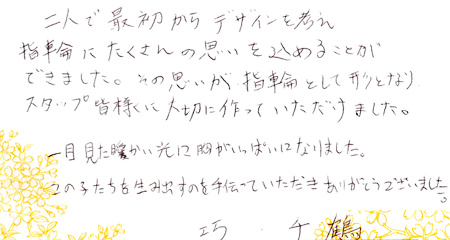 二人で最初からデザインを考え
指輪にたくさんの思いを込めることが
できました。その思いが指輪として形となり
スタッフ皆様に大切に作っていただけました。
一目見た暖かい光に胸がいっぱいになりました。
この子たちを生み出すのを手伝っていただきありがとうございました。
巧・千鶴